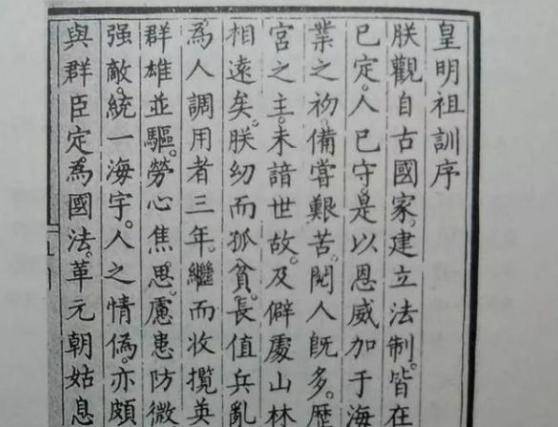 皇明祖訓序
朕觀自古國家。建立法制。皆在
已定。人已守。是以恩威加于海
業之初。備嘗艱苦。閱人旣多。歷
宮之主。未諳世故。及僻處山林
相遠矣。朕幼而孤貧。長值兵亂
爲人調用者三年。繼而收攬英
群雄並驅。勞心焦思。慮患防微
强敵。統一海宇。人之情僞。亦頗
與群臣定。爲國法。革元朝姑息